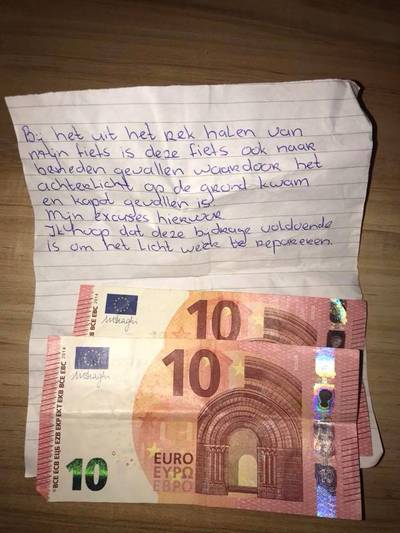 Bij het uit het rek halen van
mijn fiets is deze fiets ook naar
beneden gevallen waardoor het
achterlicht op de grond kwam
en kapot gevallen is.
Mijn excuses hiervoor
Ik hoop dat deze bijdrage voldoende
is om het licht weer te repareren.
10
10
EURO
ΕΥΡΩ
ЕВРО
10
BCE ECB ЕЦБ EZB EKP EKT EKB BĊE EBC 2014